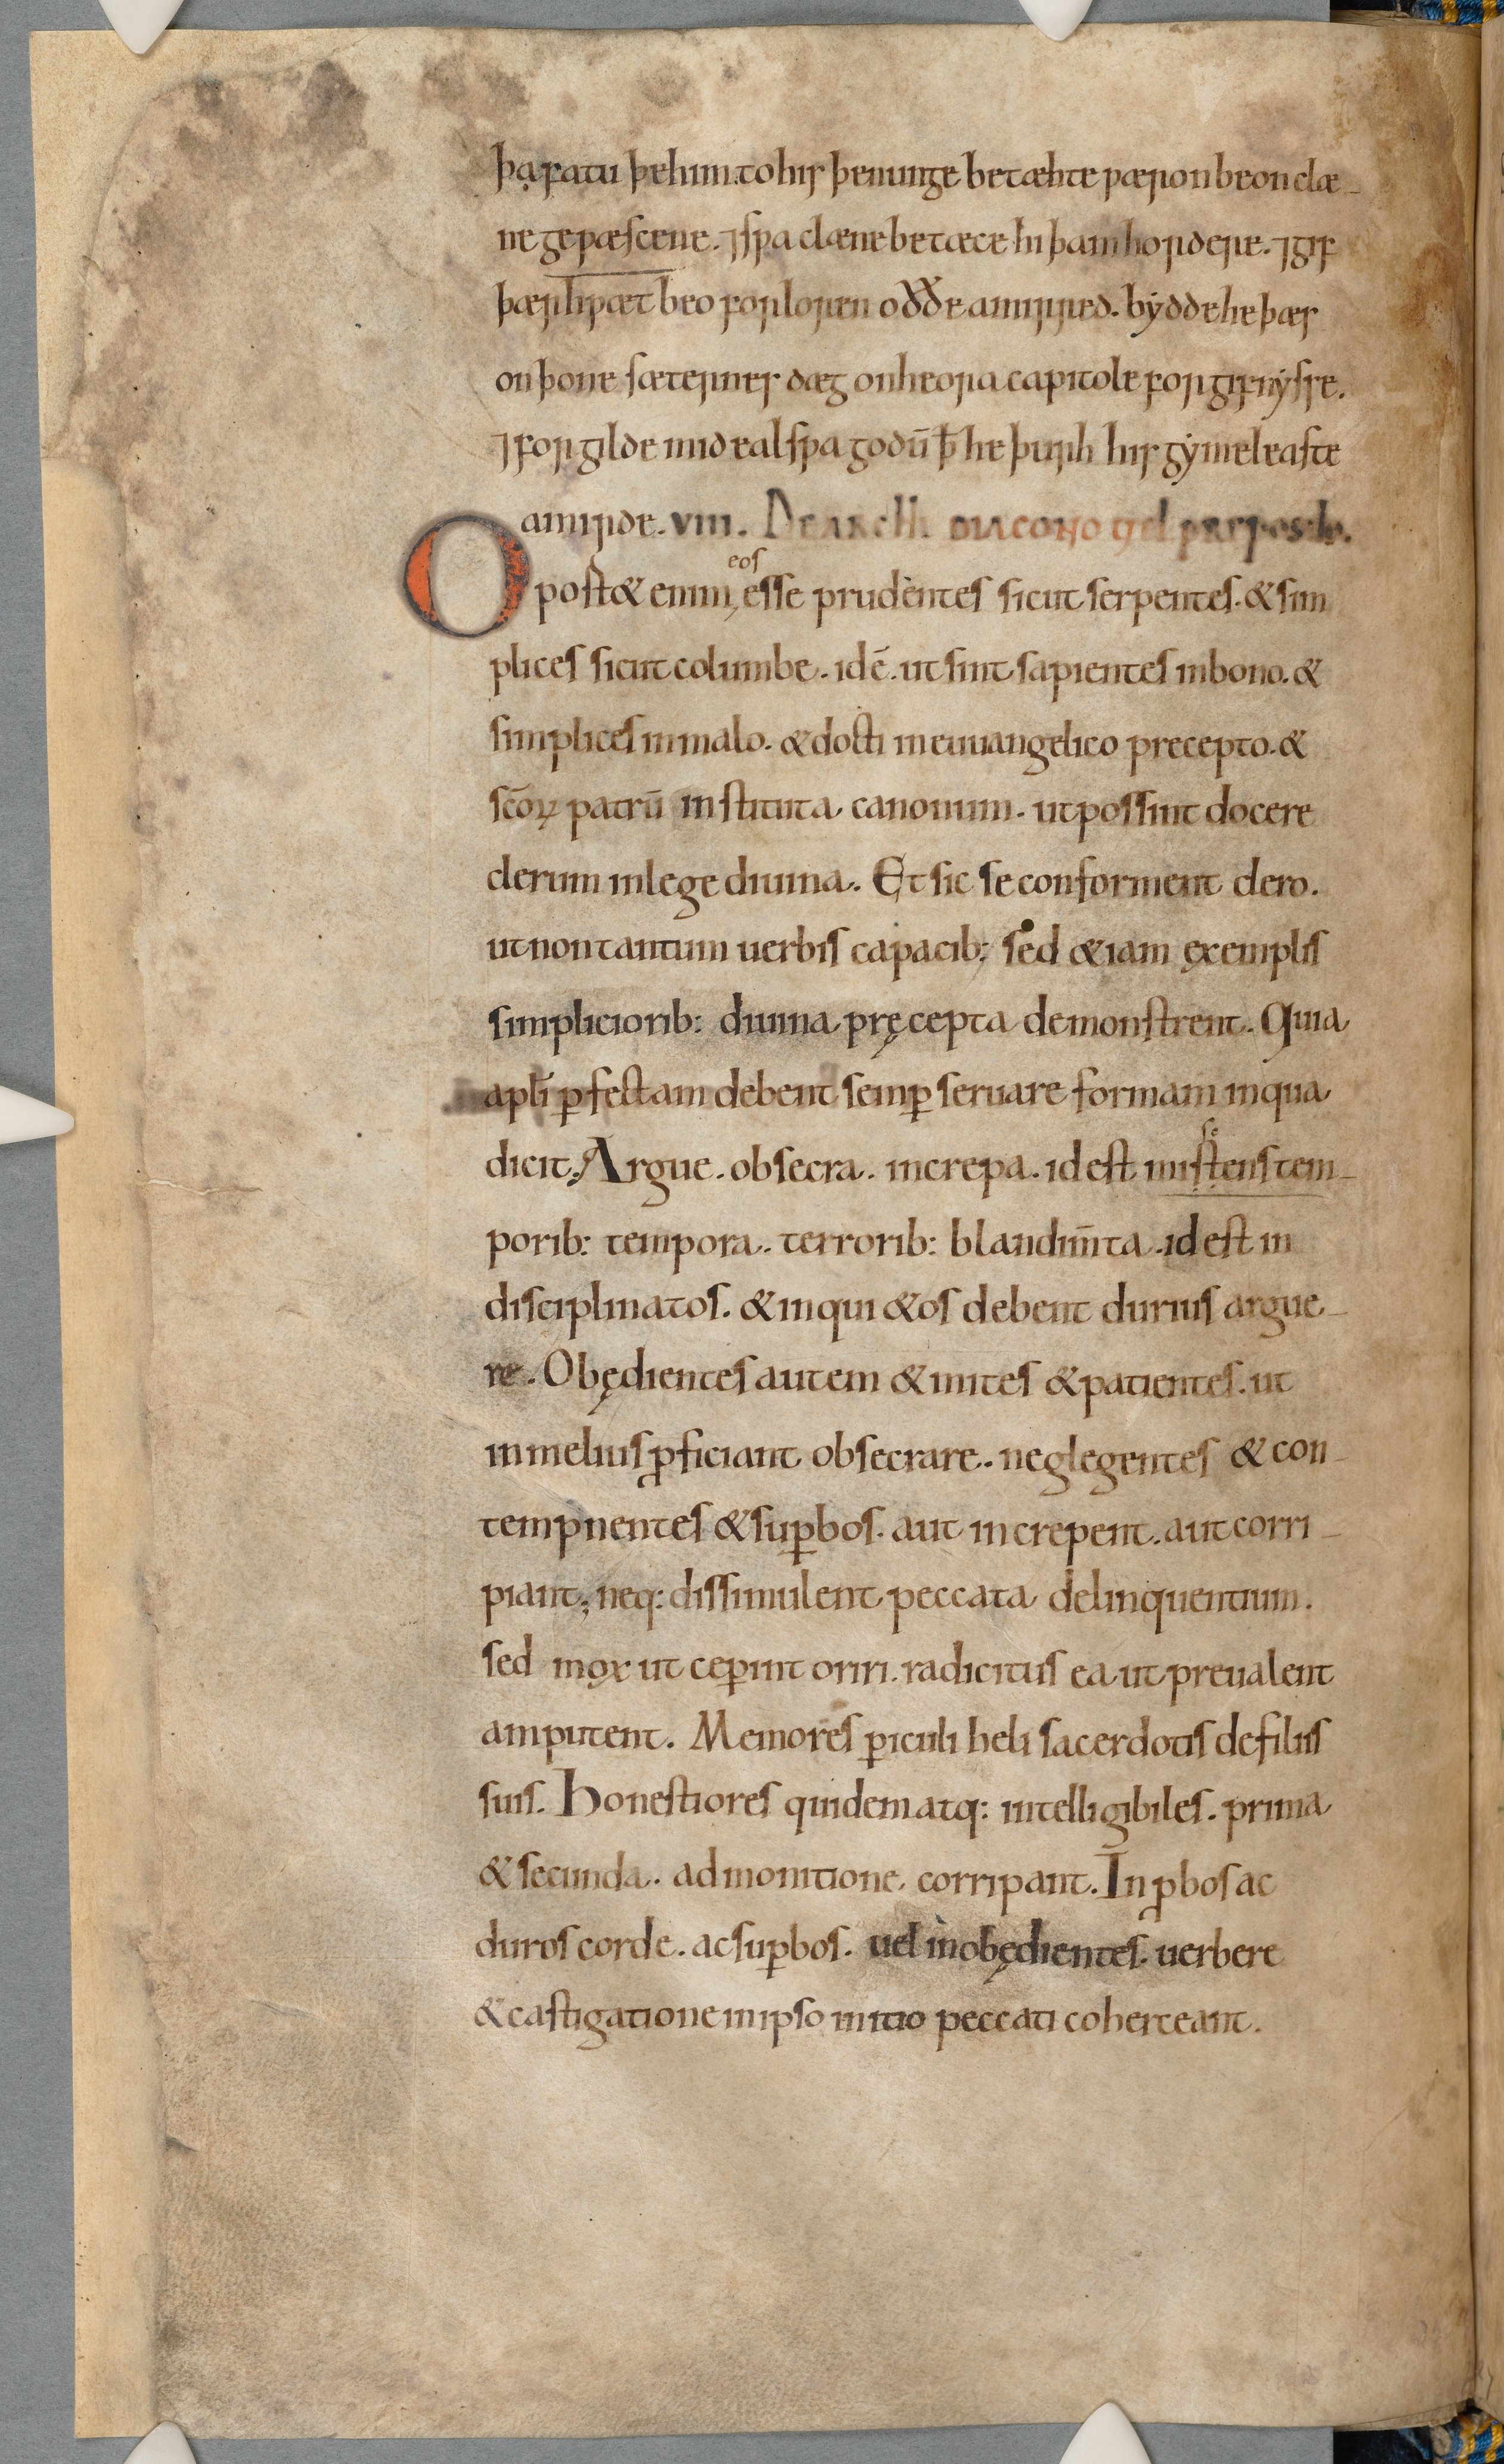 þa fatu þe him to his þenunge betæhte ƿæron beon clæ-
ne geƿæscene. ⁊ sƿa clæne betæce hi þam hordere. ⁊ gif
þær hƿæt beo forloren oððe amyrred. bydde he þæs
on þone sæternes dæg on heora capitole forgifnysse.
⁊ forgilde mid eal sƿa godū ꝥ he þurh his gymeleaste
amyrde. VIII. De archi diacono uel preposito.
Oportet enim eos esse prudentes sicut serpentes. & sim
plices sicut columbe. id ē. ut sint sapientes in bono. &
simplices in malo. & docti in euuangelico precepto. &
scōꝝ patrū instituta canonum. ut possint docere
clerum in lege diuina. Et sic se conforment clero.
ut non tantum uerbis capacib; sed &iam ęxemplis
simpliciorib: diuina pręcepta demonstrent. Quia
apli ꝑfectam debent semꝑ seruare formam in qua
dicit. Argue. obsecra. increpa. id est miscens tem-
porib: tempora. terrorib: blandim̄ta. id est in
disciplinatos. & inqui&os debent durius argue-
re. Obędientes autem & mites & patientes. ut
in melius ꝓficiant obsecrare. neglegentes & con-
tempnentes & suꝑbos. aut increpent. aut corri-
piant; neq: dissimulent peccata delinquentium.
sed mox ut ceꝑint oriri. radicitus ea ut preualent
amputent. Memores ꝑiculi heli sacerdotis de filiis
suis. Honestiores quidem atq: intelligibiles. prima
& secunda. admonitione corripant. Inꝓbos ac
duros corde. ac suꝑbos. uel inobędientes. uerbere
& castigatione in ipso initio peccati coherceant.